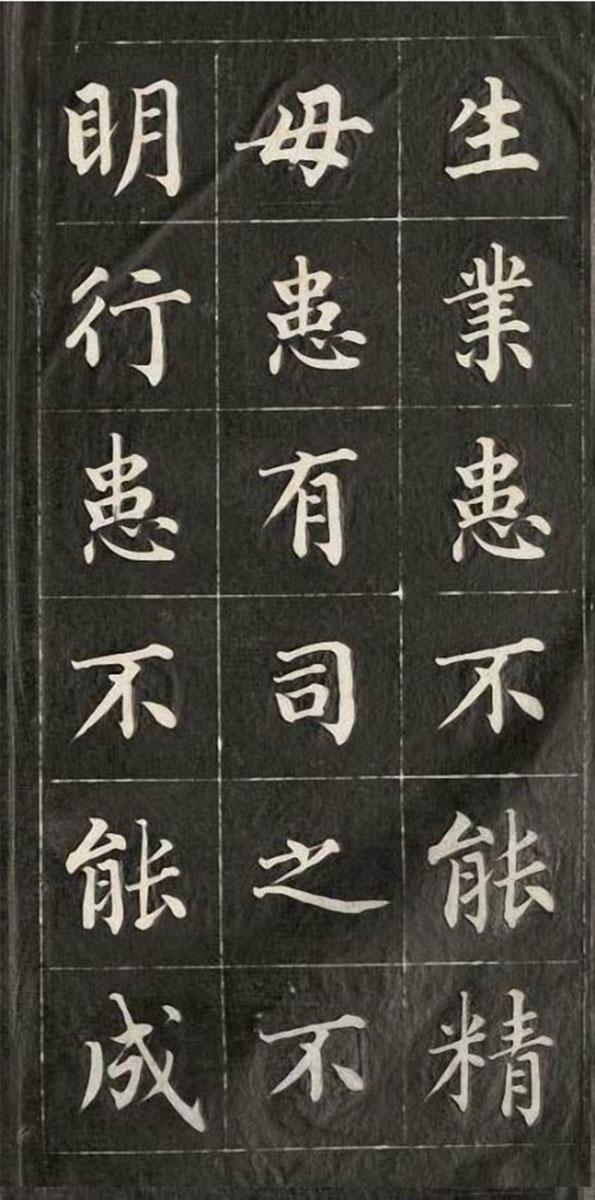 生業患不能精
毋患有司之不
明行患不能成